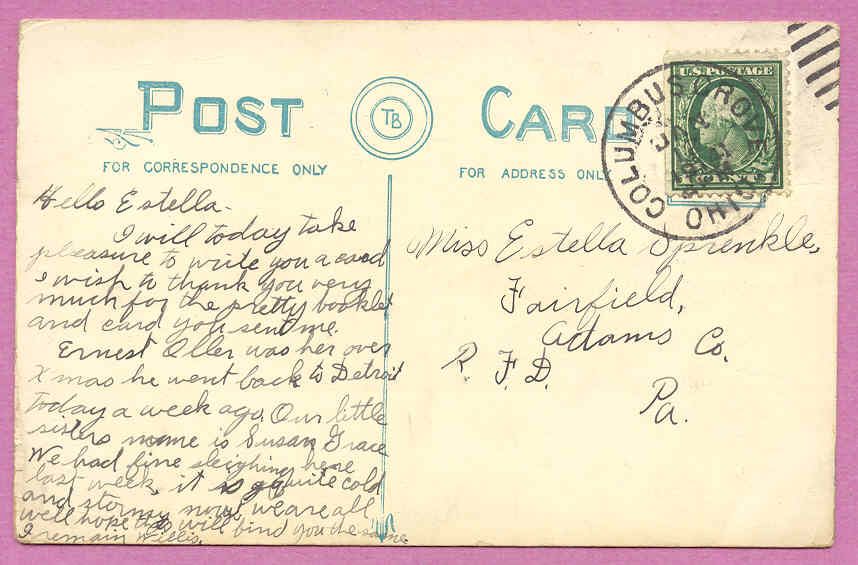 POST CARD
TB
FOR CORRESPONDENCE ONLY
FOR ADDRESS ONLY
U.S. POSTAGE
COLUMBUS GROVE
OHIO
Hello Estella-
I will today take
pleasure to write you a card
I wish to thank you very
much for the pretty booklet
and card you send me.
Ernest Oller was her over
Xmas he went back to Detroit
today a week ago. Our little
sisters name is Susan Grace
We had fine sleighing here
last week, it is quite cold
and stormy now, we are all
well hope this will find you the same
I remain Willis.
Miss Estella Sprenkle,
Fairfield,
Adams Co.
R. F. D.
Pa.